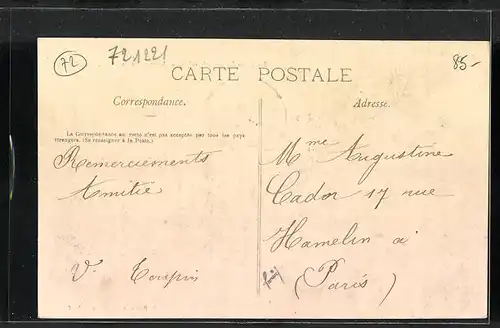 72
721221
85-
CARTE POSTALE
Correspondance.
Adresse.
La Correspondance au recto n'est pas acceptée par tous les pays
étrangers. (Se renseigner à la Poste.)
Remerciements
Amitié
V.
Mme Augustine
Cador 17 rue
Hamelin à
(Paris)